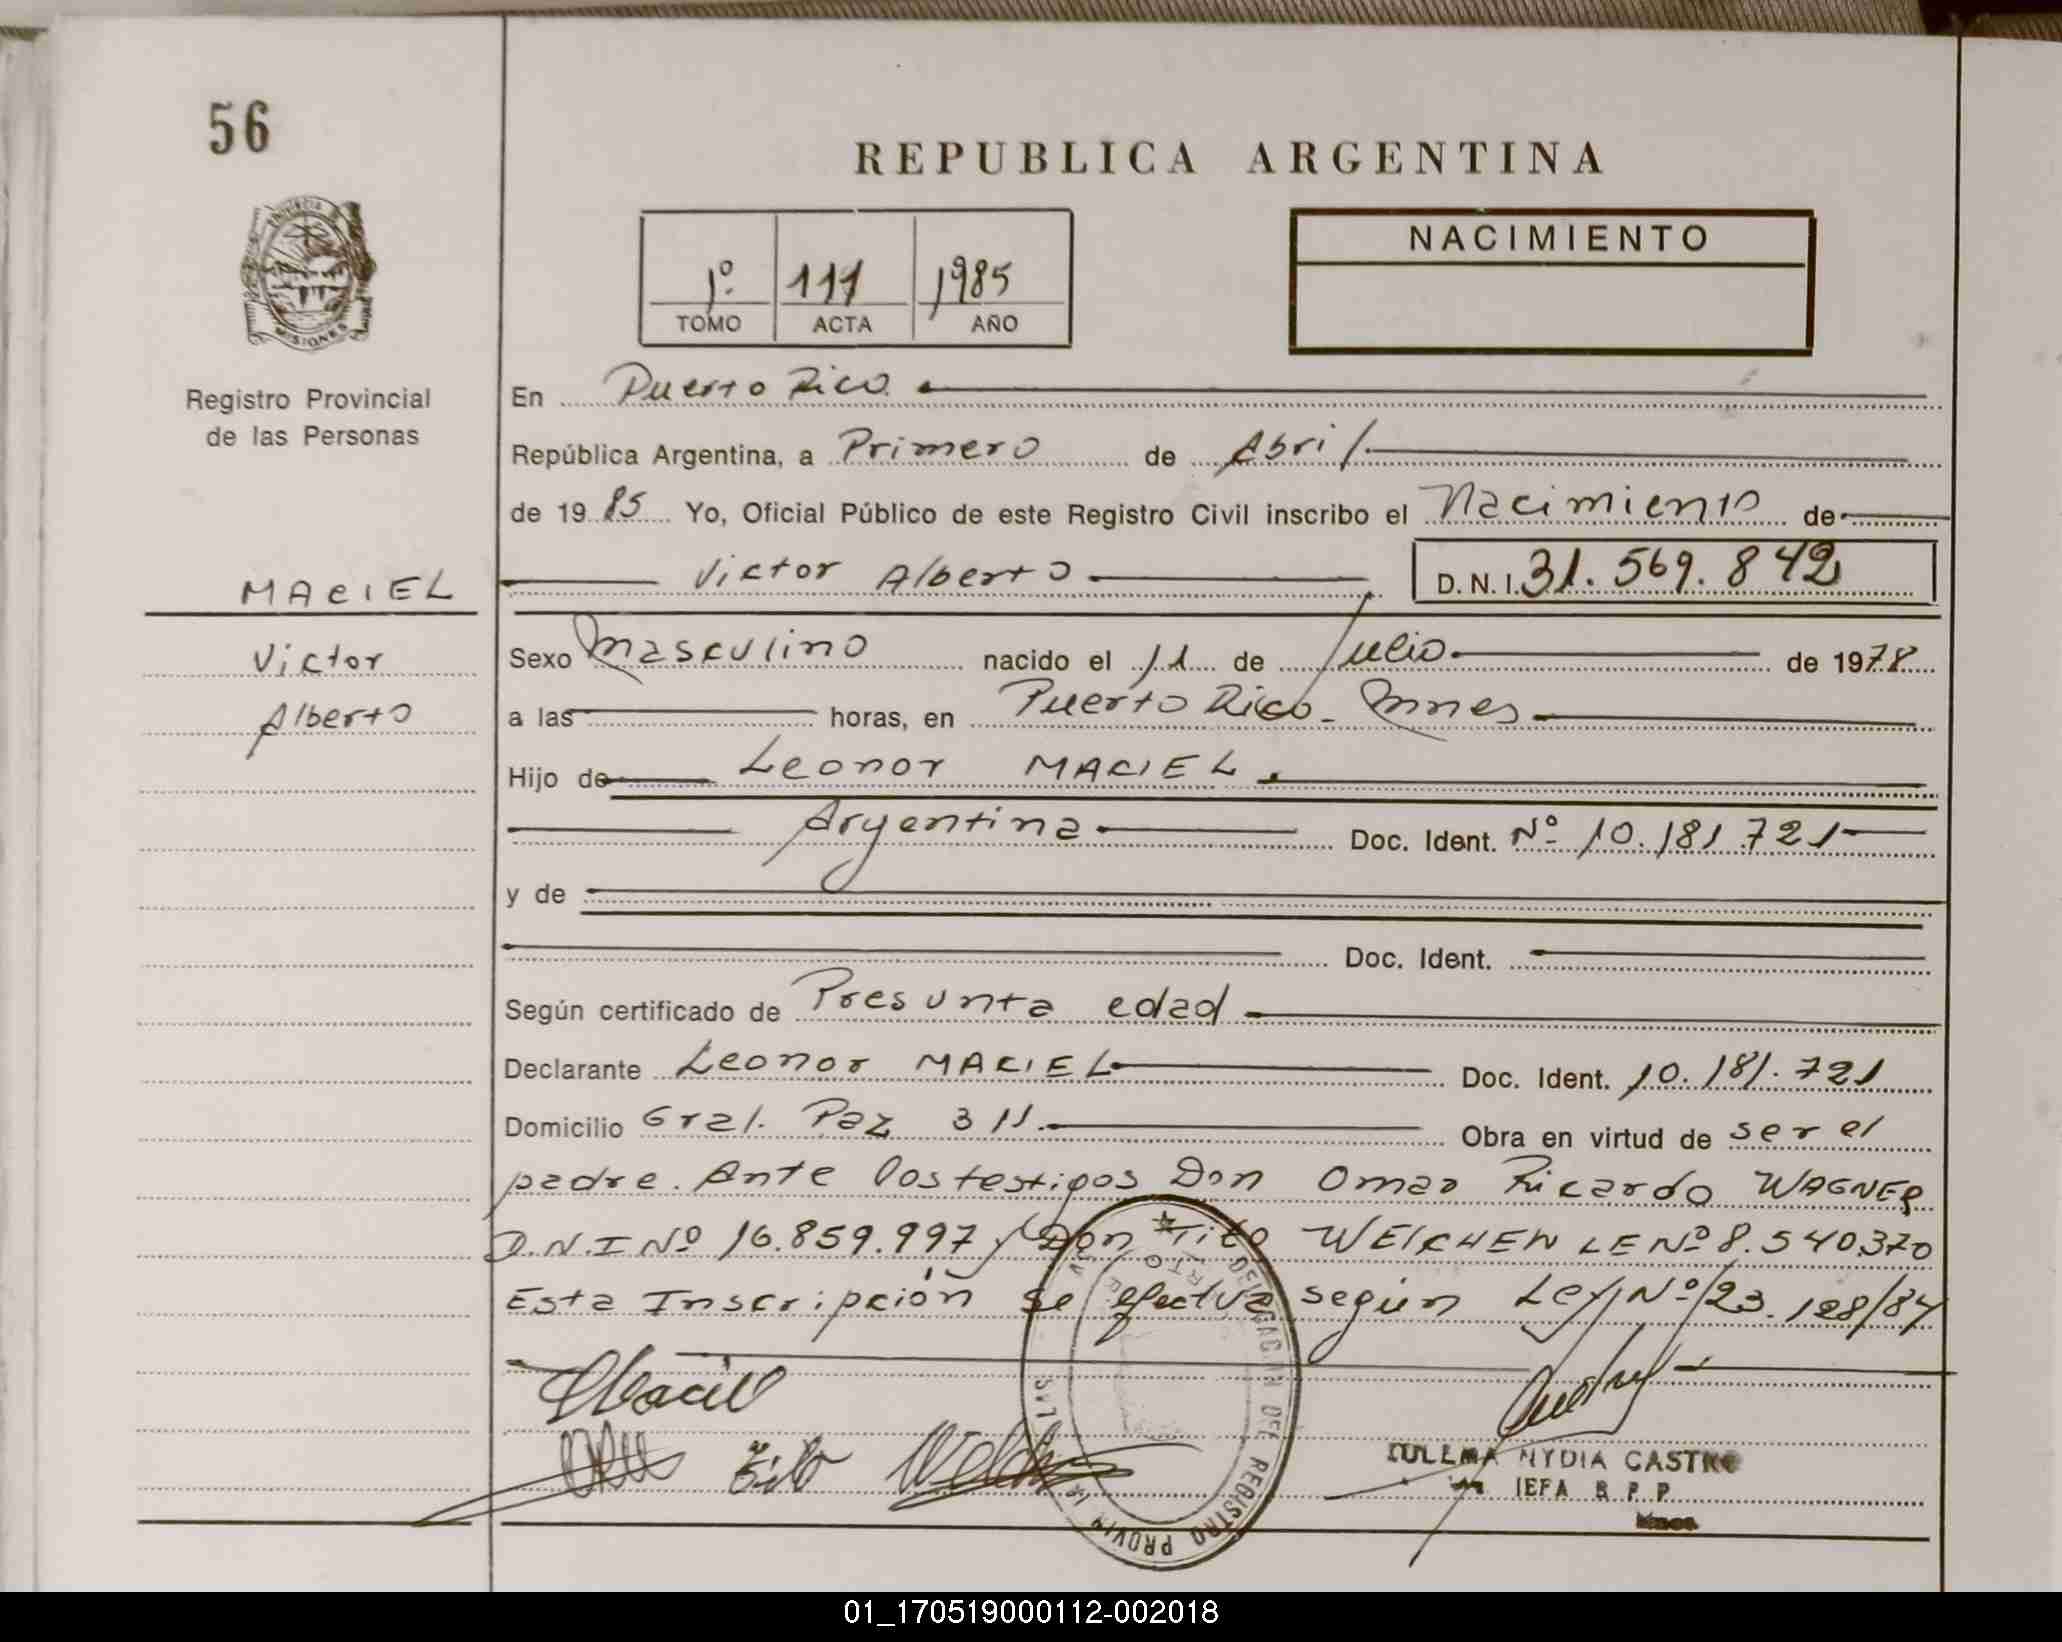 56
REPUBLICA ARGENTINA
PROVINCIA
MISIONES
1º 111 1985
TOMO ACTA AÑO
NACIMIENTO
Registro Provincial
de las Personas
En Puerto Rico
República Argentina, a Primero de Abril
de 1985 Yo, Oficial Público de este Registro Civil inscribo el Nacimiento de
MACIEL
Victor Alberto D.N.I. 31.569.842
Victor
Alberto
Sexo Masculino nacido el 11 de Julio de 1978
a las horas, en Puerto Rico - Mnes
Hijo de Leonor MACIEL.
Argentina Doc. Ident. Nº 10.181.721
y de
Doc. Ident.
Según certificado de Presunta edad
Declarante Leonor MACIEL Doc. Ident. 10.181.721
Domicilio Gral. Paz 311. Obra en virtud de ser el
padre. Ante los testigos Don Omar Ricardo WAGNER
D.N.I Nº 16.859.997 y Don Tito WELCHEN LE Nº 8.540.370
Esta Inscripción se efectua según Ley Nº 23.128/84
Maciel
Tito Welchen
DELEGAC. DEL REGISTRO PROVIN
NYDIA CASTRO
JEFA R P P
Mnes
01_170519000112-002018